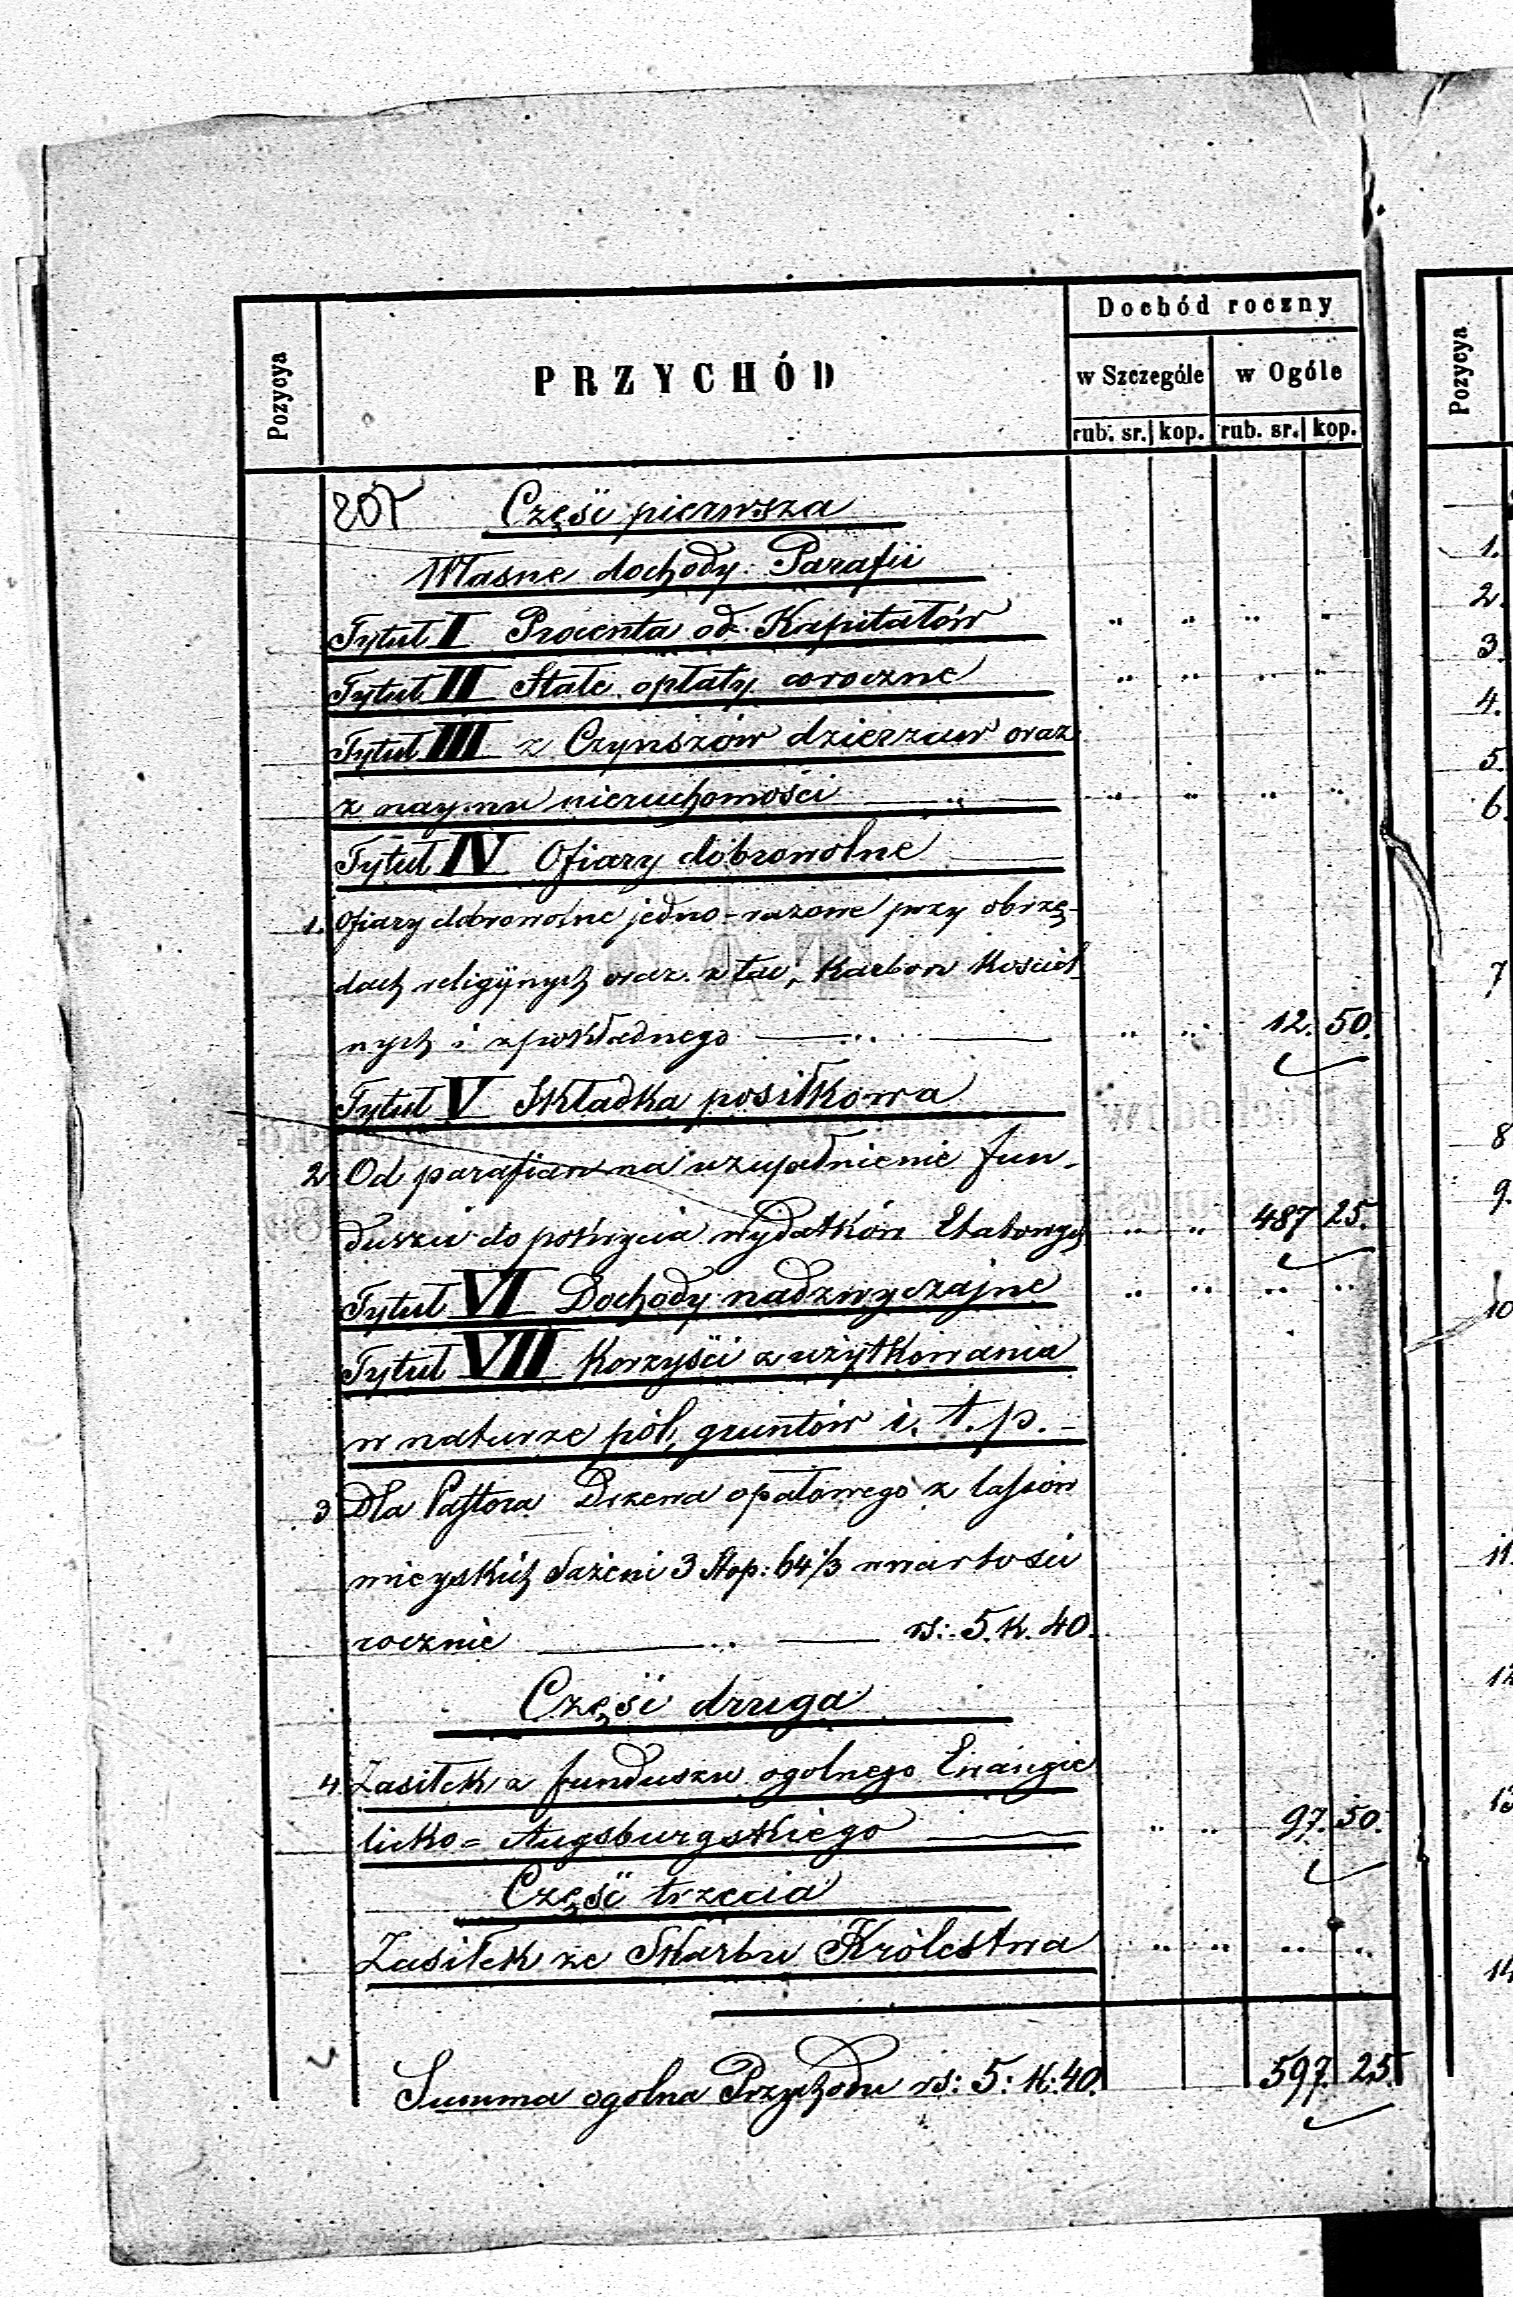 Dochód roczny
Pozycya
PRZYCHÓD
w Szczególe w Ogóle
rub. sr. kop. rub. sr. kop.
Pozycya
205 Część pierwsza
Własne dochody Parafii
Tytuł I Procenta od Kapitałów " " " "
Tytuł II Stałe opłaty coroczne " " " "
Tytuł III z Czynszów dzierzaw oraz
z naymu nieruchomości — " — " " " "
Tytuł IV Ofiary dobrowolne —
1. Ofiary dobrowolne jedno-razowe przy obrzę-
dach religijnych oraz z tac, Karbon Kościel
nych i zpokładnego — " — " " 12. 50.
Tytuł V Składka posiłkowa
2. Od parafian na uzupełnienie fun-
duszu do pokrycia wydatków Etatowych " " 487 25.
Tytuł VI Dochody nadzwyczajne " " " "
Tytuł VII Korzyści z użytkowania
w naturze pól, gruntów i. t. p. -
3 Dla Pastora Drzewa opałowego z lasów
mieyskich Sążeni 3 Stop: 64 1/3 wartości
rocznie — " — rs: 5. K. 40.
Część druga
4. Zasiłek z funduszu ogolnego Ewangie
licko= Augsburgskiego — " " 97. 50.
Część trzecia
Zasiłek ze Skarbu Królestwa " " " "
Summa ogolna Przychodu rs: 5: K: 40. 597. 25.
1.
2.
3.
4.
5.
6.
7
8
9.
10
11.
12
13
14